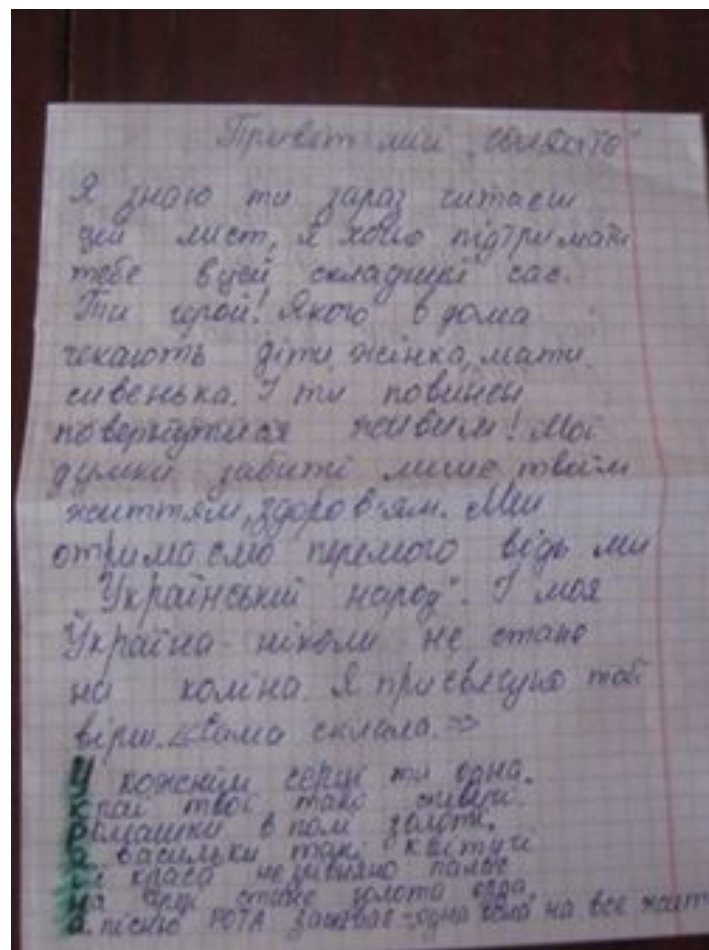 Привет мій "
Я знаю ти зараз читаєш
цей лист, я хочу підтримати
тебе в цей складний час.
Ти герой! Якого вдома
чекають діти, жінка, мати
сивенька. І ти повинен
повернутися живим! Мої
думки забиті лише твоїм
життям, здоров'ям. Ми
отримаємо перемого відь ми
"Український народ". І моя
Україна - ніколи не стане
на коліна. Я присвячую тобі
вірш. «Сама склала.»
У кожнім серці ти одна.
Краї твої такі
Ромашки в полі золоті,
А васильки такі квітучі
Її краса незрівняно палає
На
А пісню РОТА заспіває одна на все життя